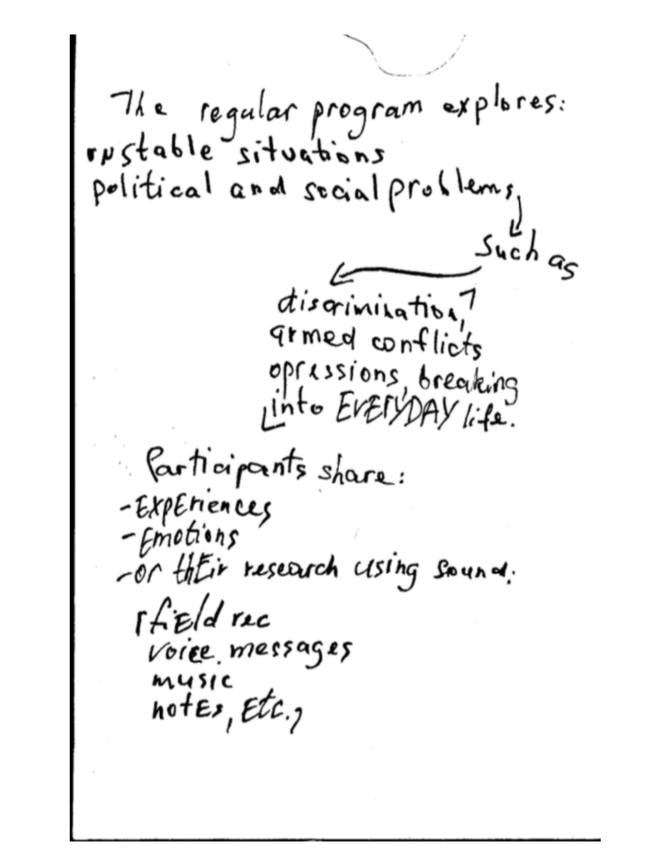 The regular program explores:
unstable situations
political and social problems,
such as
discrimination,
armed conflicts
opressions, breaking
into EVERYDAY life.
Participants share:
- Experiences
- Emotions
- or their research using sound:
field rec
voice messages
music
notes, etc.,